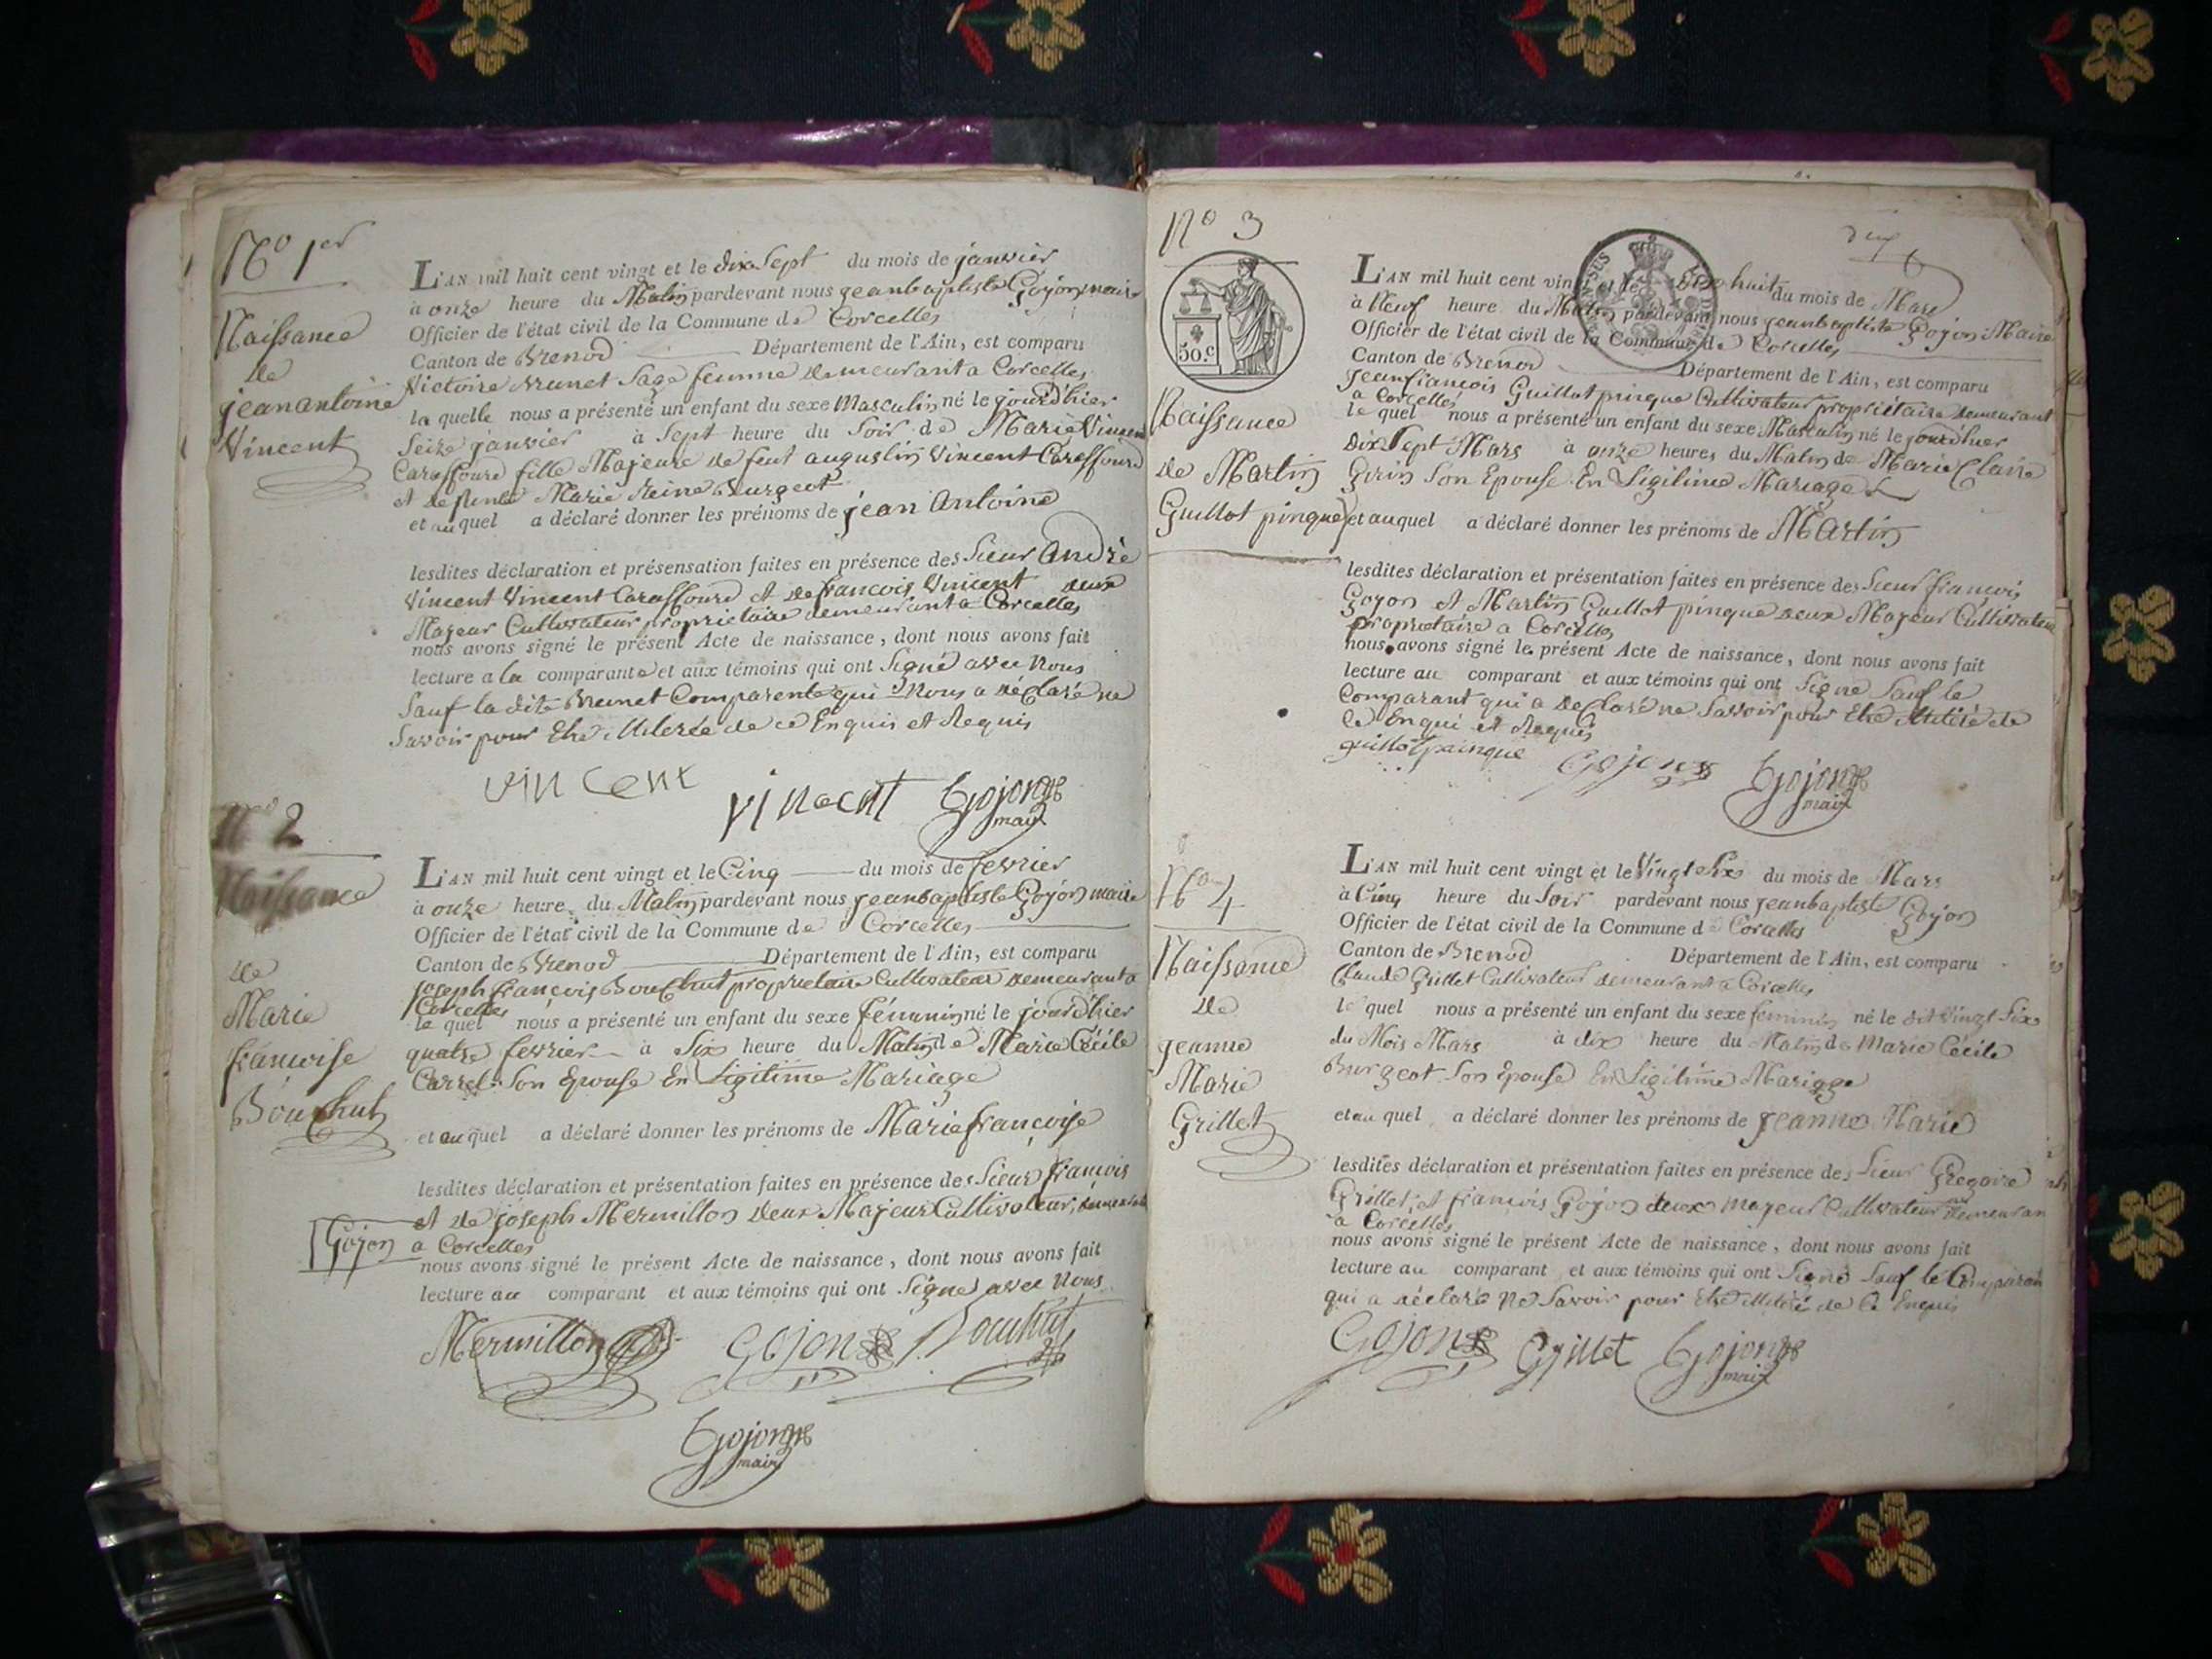 No 1er
Naissance
de
jean antoine
Vincent
L'AN mil huit cent vingt et le dix Sept du mois de janvier
à onze heure du Matin pardevant nous jeanbaptiste Gojon maire
Officier de l'état civil de la Commune de Corcelles
Canton de Brenod Département de l'Ain, est comparu
Victoire Brunet Sage femme demeurant a Corcelles
la quelle nous a présenté un enfant du sexe Masculin né le jourd'hier
Seize janvier à Sept heure du Soir de Marie Vincent
Caraffourd fille Majeure de feut augustin Vincent Caraffourd
et de funte Marie Reine Burgeot
et au quel a déclaré donner les prénoms de jean Antoine
lesdites déclaration et présensation faites en présence des Sieur André
Vincent Vincent Caraffourd et de francois Vincent deux
Majeur Cultivateur proprietaire demeurant a Corcelles
nous avons signé le présent Acte de naissance, dont nous avons fait
lecture a la comparante et aux témoins qui ont Signé avec Nous
Sauf la dite Brunet Comparente qui Nous a déclaré ne
Savoir pour Etre illeree de ce Enquis et Requis
vincent vinecnt Gojon
maire
No 2
Naissance
de
Marie
francoise
Bouchut
L'AN mil huit cent vingt et le Cinq du mois de fevrier
à onze heure du Matin pardevant nous jeanbaptiste Gojon maire
Officier de l'état civil de la Commune de Corcelles
Canton de Brenod Département de l'Ain, est comparu
joseph françois Bouchut proprietaire Cultivateur demeurant a
Corcelles
le quel nous a présenté un enfant du sexe féminin né le jourd'hier
quatre fevrier à Six heure du Matin de Marie Cécile
Carrel Son Epouse En Ligitime Mariage
et au quel a déclaré donner les prénoms de Marie françoise
lesdites déclaration et présentation faites en présence des Sieur francois
Gojon et de joseph Mermillon deux Majeur Cultivateur, demeurant
a Corcelles
nous avons signé le présent Acte de naissance, dont nous avons fait
lecture au comparant et aux témoins qui ont Signé avec Nous
Mermillon Gojon Bouchut
Gojon
maire
No 3
50.c
Naissance
de Martin
Guillot pinque
L'AN mil huit cent vingt et le dix huit du mois de Mars
à Neuf heure du Matin pardevant nous jeanbaptiste Gojon Maire
Officier de l'état civil de la Commune de Corcelles
Canton de Brenod Département de l'Ain, est comparu
jeanfrancois Guillot pinque Cultivateur proprietaire demeurant
a Corcelles
le quel nous a présenté un enfant du sexe Masculin né le jourd'hier
dix Sept Mars à onze heures du Matin de Marie Claire
Girin Son Epouse En Ligitime Mariage
et auquel a déclaré donner les prénoms de Martin
lesdites déclaration et présentation faites en présence des Sieur françois
Gojon et Martin Guillot pinque deux Majeur Cultivateur
proprietaire a Corcelles
nous avons signé le présent Acte de naissance, dont nous avons fait
lecture au comparant et aux témoins qui ont Signé Sauf le
Comparant qui a declaré ne Savoir pour Etre illitéré de
Ce Enqui et Requis
guillotpainque Gojon Gojon
maire
No 4
Naissance
de
jeanne
Marie
Grillet
L'AN mil huit cent vingt et le Vingt Six du mois de Mars
à Cinq heure du Soir pardevant nous jeanbaptiste Gojon
Officier de l'état civil de la Commune de Corcelles
Canton de Brenod Département de l'Ain, est comparu
Claude Grillet Cultivateur demeurant a Corcelles
le quel nous a présenté un enfant du sexe feminin né le dit Vingt Six
du Mois Mars à dix heure du Matin de Marie Cécile
Burgeot Son Epouse En Ligitime Mariage
et au quel a déclaré donner les prénoms de jeanne Marie
lesdites déclaration et présentation faites en présence des Sieur Gregoire
Grillet, et françois Gojon deux majeur Cultivateur demeuran
a Corcelles
nous avons signé le présent Acte de naissance, dont nous avons fait
lecture au comparant et aux témoins qui ont Signé Sauf le Comparan
qui a déclaré Ne Savoir pour Etre illitéré de Ce Enquis
Gojon Grillet Gojon
maire